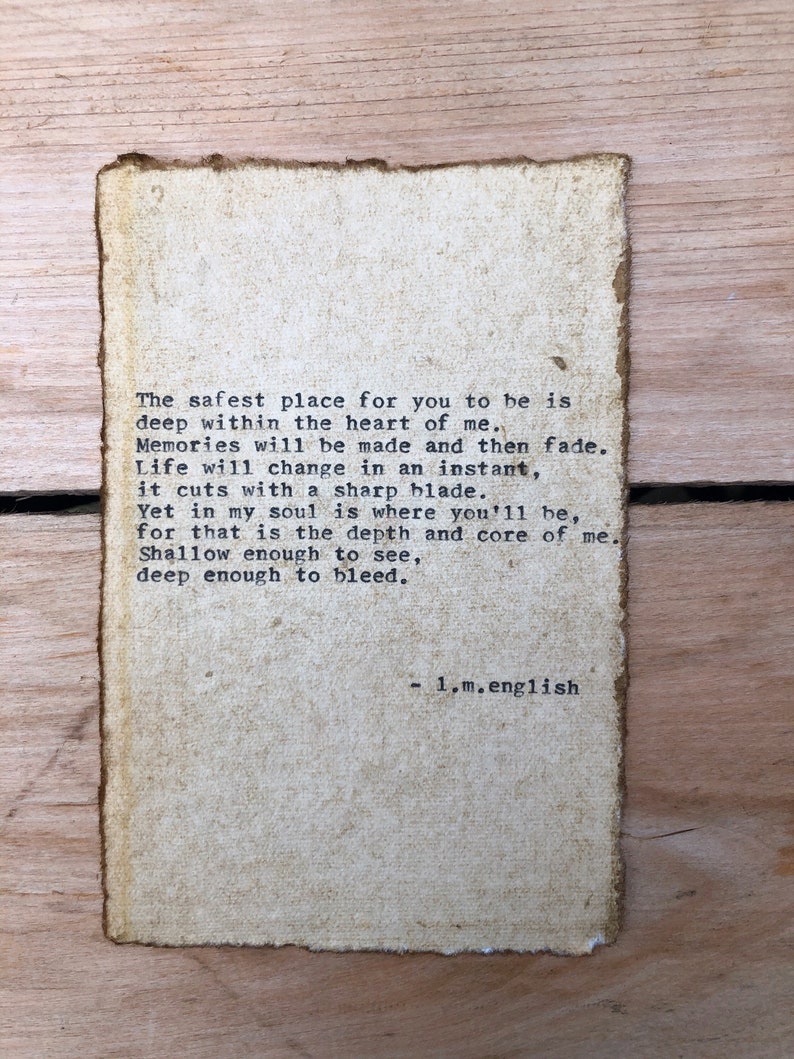 The safest place for you to be is
deep within the heart of me.
Memories will be made and then fade.
Life will change in an instant,
it cuts with a sharp blade.
Yet in my soul is where you'll be,
for that is the depth and core of me.
Shallow enough to see,
deep enough to bleed.
- l.m.english